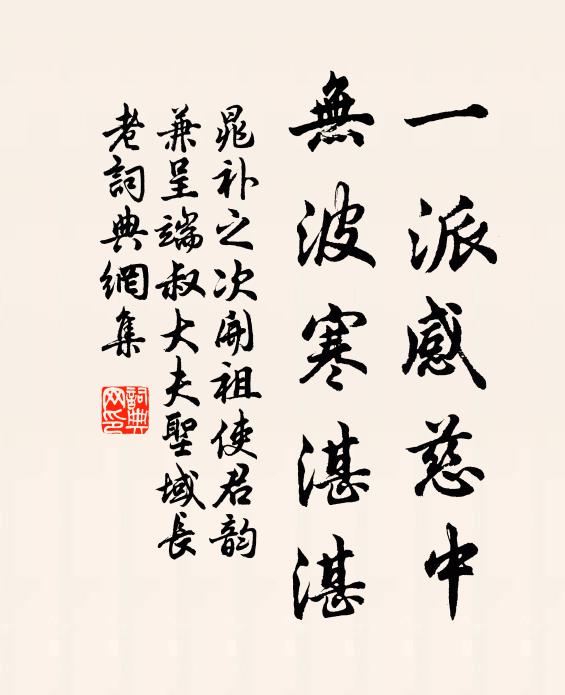 一派感慈中
無波寒湛湛
晁补之次開祖使君韵
兼呈端叔大夫聖域長
老詞典網集
詞典网印